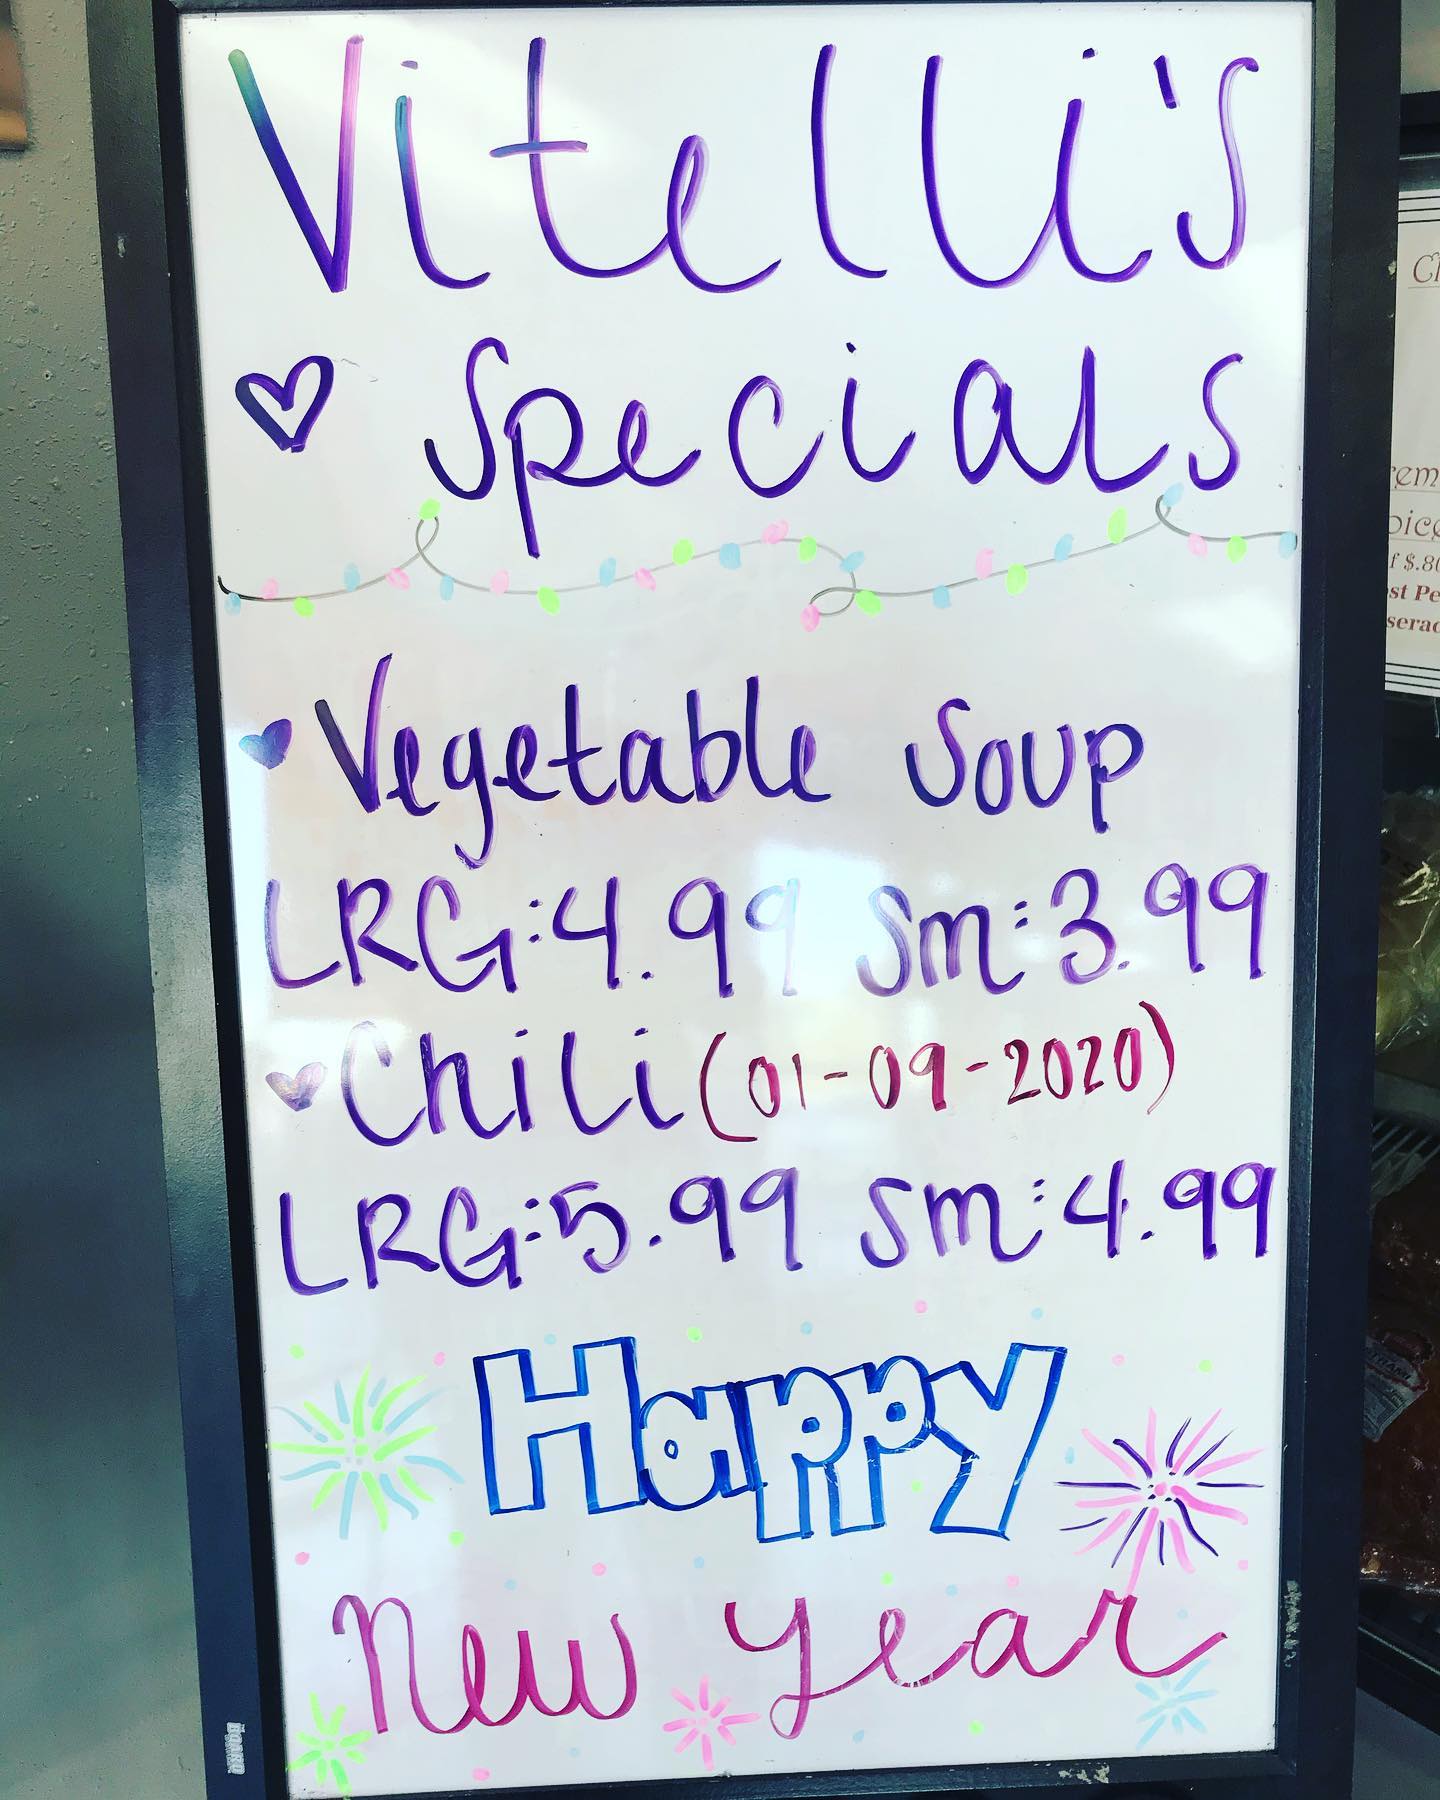 Vitelli's
Specials
Vegetable Soup
LRG:4.99 Sm:3.99
Chili (01-09-2020)
LRG:5.99 Sm:4.99
Happy
New Year
BOARD
f $.80